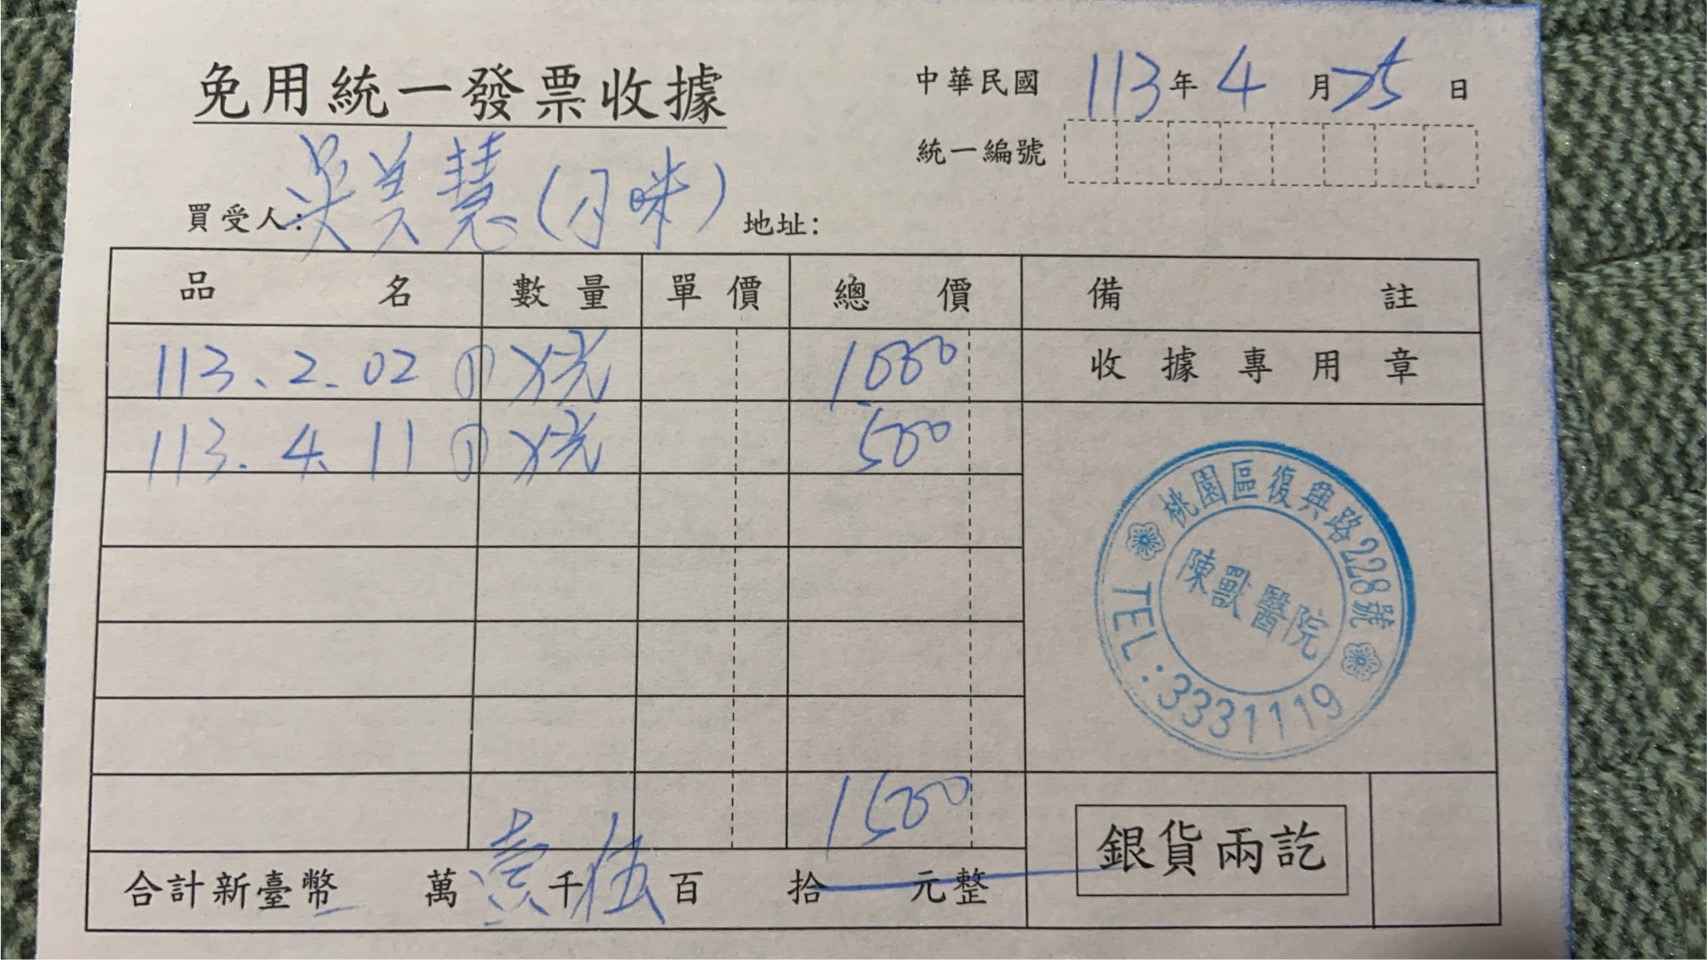 免用統一發票收據
中華民國 113 年 4 月 25 日
統一編號
買受人: 吳美慧(月咪) 地址:
品名 數量 單價 總價 備註
113.2.02 1000 收據專用章
113.4.11 500
桃園區復興路228號
陳獸醫院
TEL:3331119
1500
合計新臺幣 萬 壹 千 伍 百 拾 元整
銀貨兩訖